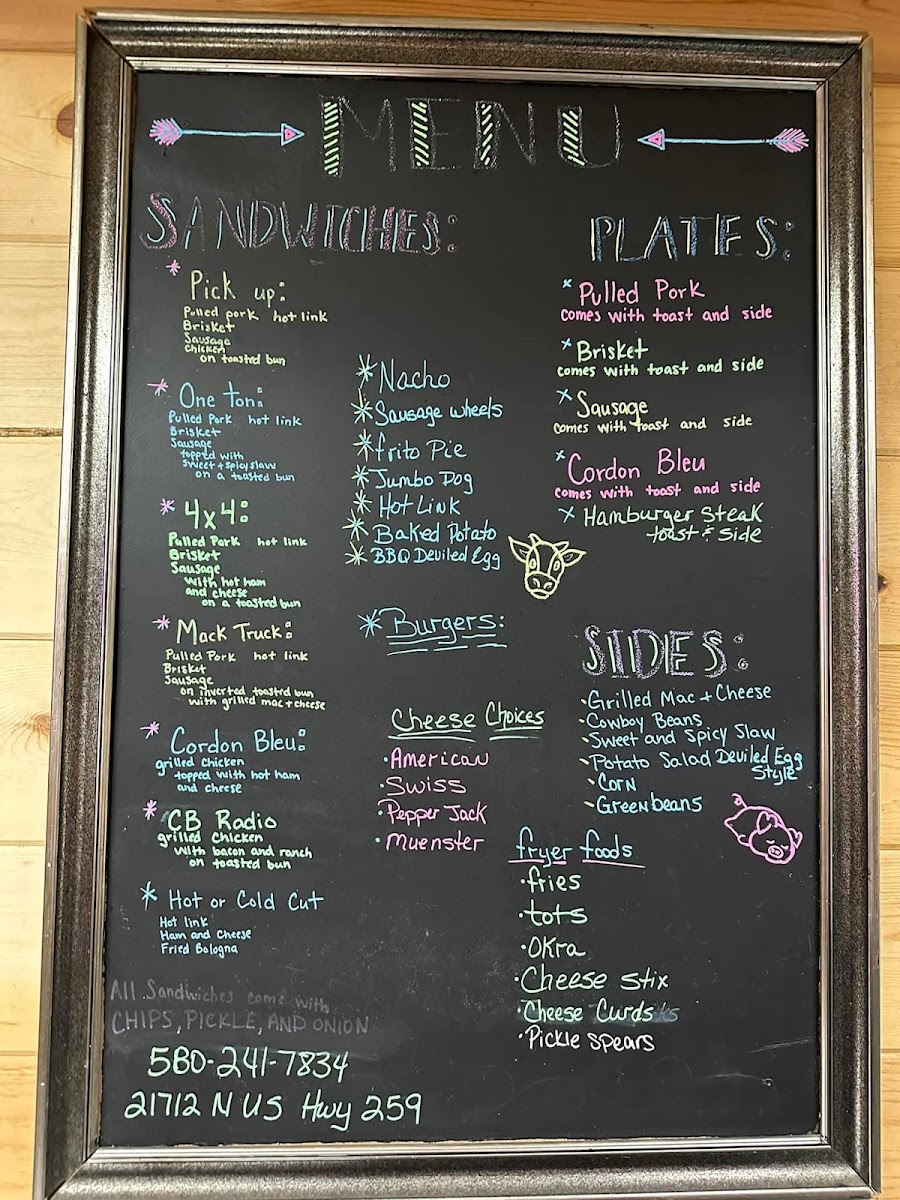 MENU
SANDWICHES:
* Pick up:
Pulled pork hot link
Brisket
Sausage
Chicken
on toasted bun
* One ton:
Pulled Pork hot link
Brisket
Sausage
topped with
sweet + spicy slaw
on a toasted bun
* 4x4:
Pulled Pork hot link
Brisket
Sausage
with hot ham
and cheese
on a toasted bun
* Mack Truck:
Pulled Pork hot link
Brisket
Sausage
on inverted toasted bun
with grilled mac + cheese
* Cordon Bleu:
grilled chicken
topped with hot ham
and cheese
* CB Radio
grilled chicken
with bacon and ranch
on toasted bun
* Hot or Cold Cut
Hot link
Ham and Cheese
Fried Bologna
All Sandwiches come with
CHIPS, PICKLE, AND ONION
580-241-7834
21712 N US Hwy 259
* Nacho
* Sausage wheels
* frito Pie
* Jumbo Dog
* Hot Link
* Baked Potato
* BBQ Deviled Egg
* Burgers:
Cheese Choices
· American
· Swiss
· Pepper Jack
· Muenster
PLATES:
* Pulled Pork
comes with toast and side
* Brisket
comes with toast and side
* Sausage
comes with toast and side
* Cordon Bleu
comes with toast and side
* Hamburger Steak
toast & Side
SIDES:
· Grilled Mac + Cheese
· Cowboy Beans
· Sweet and Spicy Slaw
· Potato Salad Deviled Egg
Style
· Corn
· Green beans
fryer foods
· fries
· tots
· Okra
· Cheese Stix
· Cheese Curds
· Pickle Spears